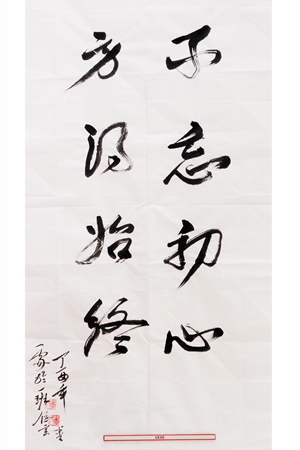 不忘初心
方得始终
丁酉年